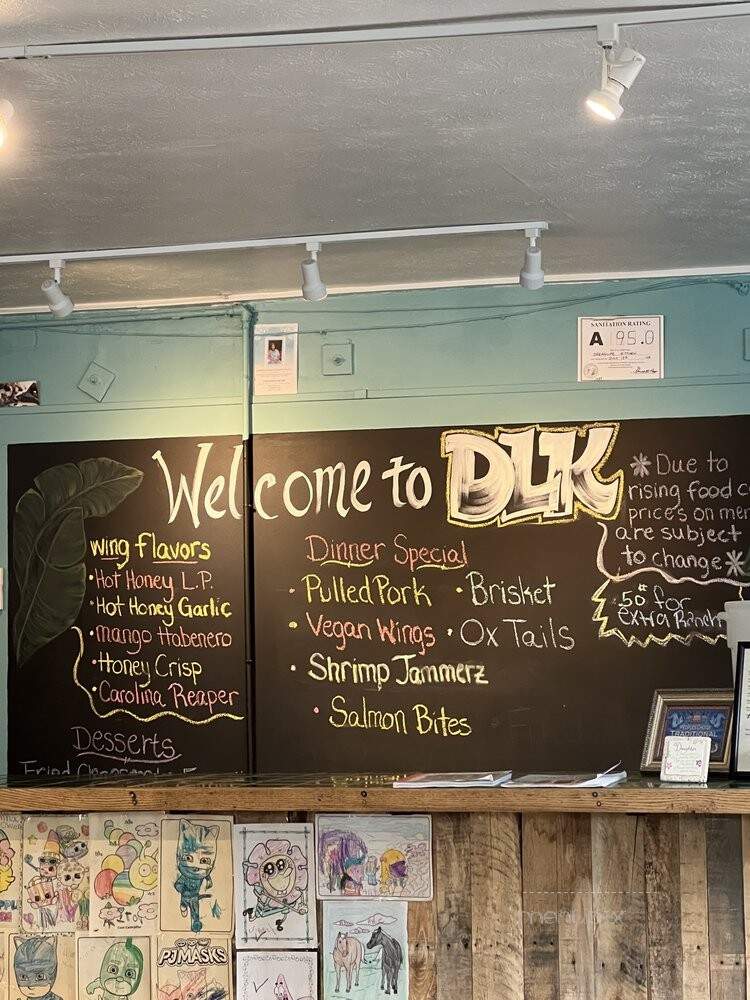 SANITATION RATING
A 95.0
Welcome to DLK
wing flavors
• Hot Honey L.P.
• Hot Honey Garlic
• mango Habenero
• Honey Crisp
• Carolina Reaper
Desserts
Fried Cheesecake
Dinner Special
• Pulled Pork • Brisket
• Vegan Wings • Ox Tails
• Shrimp Jammerz
• Salmon Bites
* Due to
rising food
prices on
are subject
to change *
.50¢ for
extra Ranch
TRADITIONAL
PJ MASKS